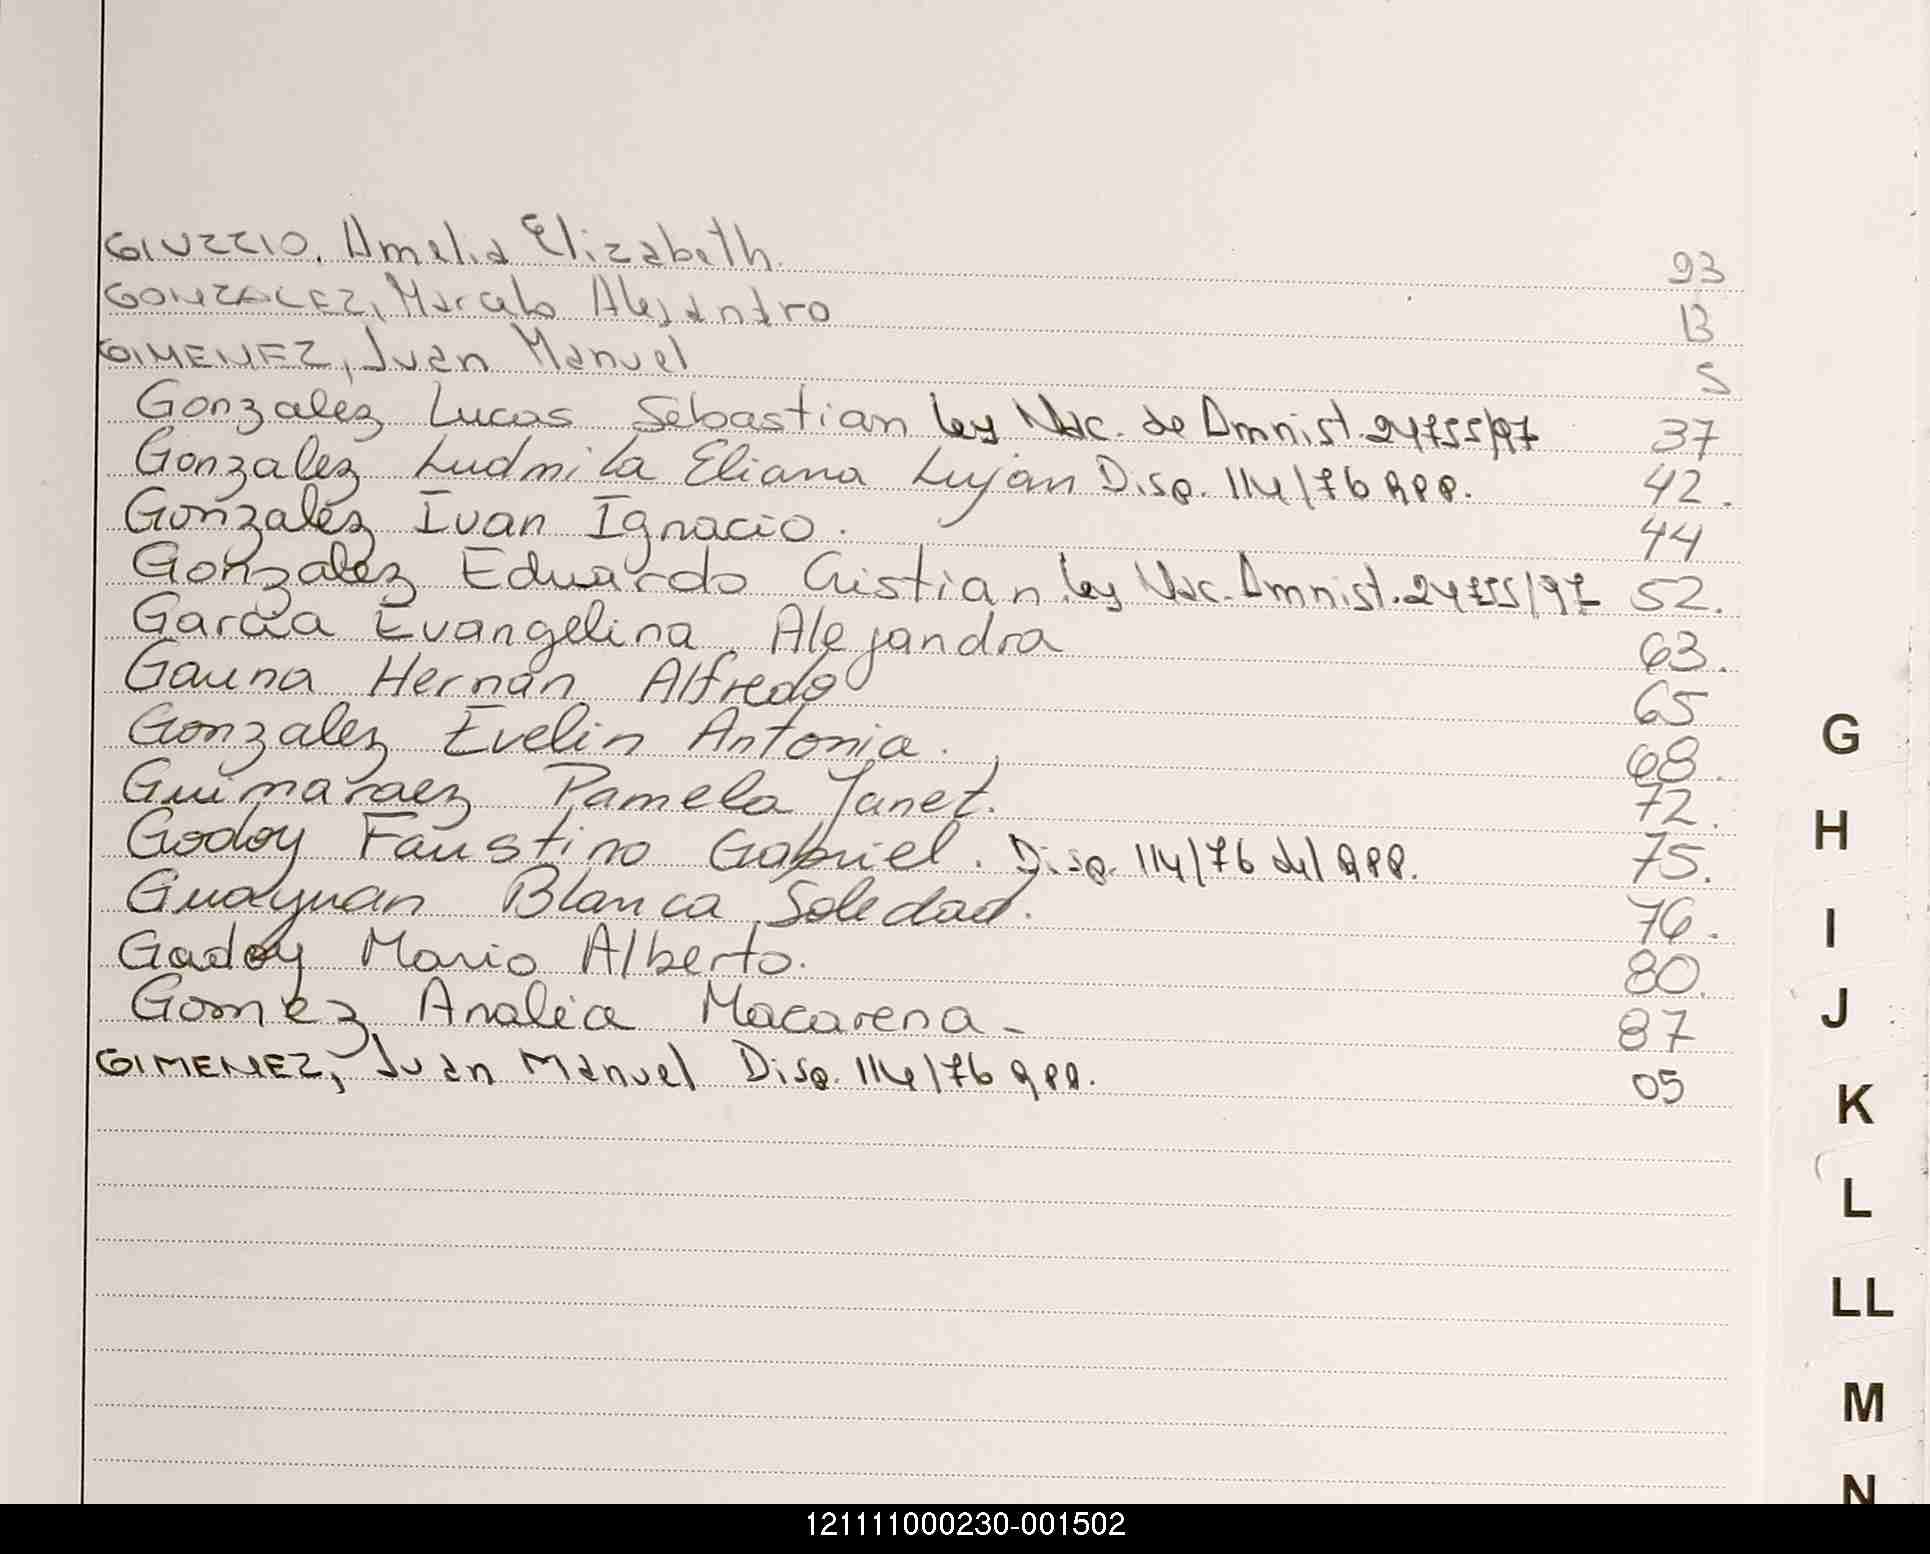 GIUZZIO, Amelia Elizabeth. 93
GONZALEZ, Marcelo Alejandro 13
GIMENEZ, Juan Manuel 5
Gonzalez Lucas Sebastian ley Nac. de Amnist. 24755/97 37
Gonzalez Ludmila Eliana Lujan Disp. 114/76 RPP. 42.
Gonzalez Ivan Ignacio. 44
Gonzalez Eduardo Cristian ley Nac. Amnist. 24755/97 52.
Garcia Evangelina Alejandra 63.
Gauna Hernan Alfredo 65
Gonzalez Evelin Antonia. 68.
Guimaraez Pamela Janet. 72.
Godoy Faustino Gabriel. Disp. 114/76 del RPP. 75.
Guayuan Blanca Soledad. 76.
Gadoy Mario Alberto. 80.
Gomez Analia Macarena - 87
GIMENEZ, Juan Manuel Disp. 114/76 RPP. 05
G
H
I
J
K
L
LL
M
N
121111000230-001502